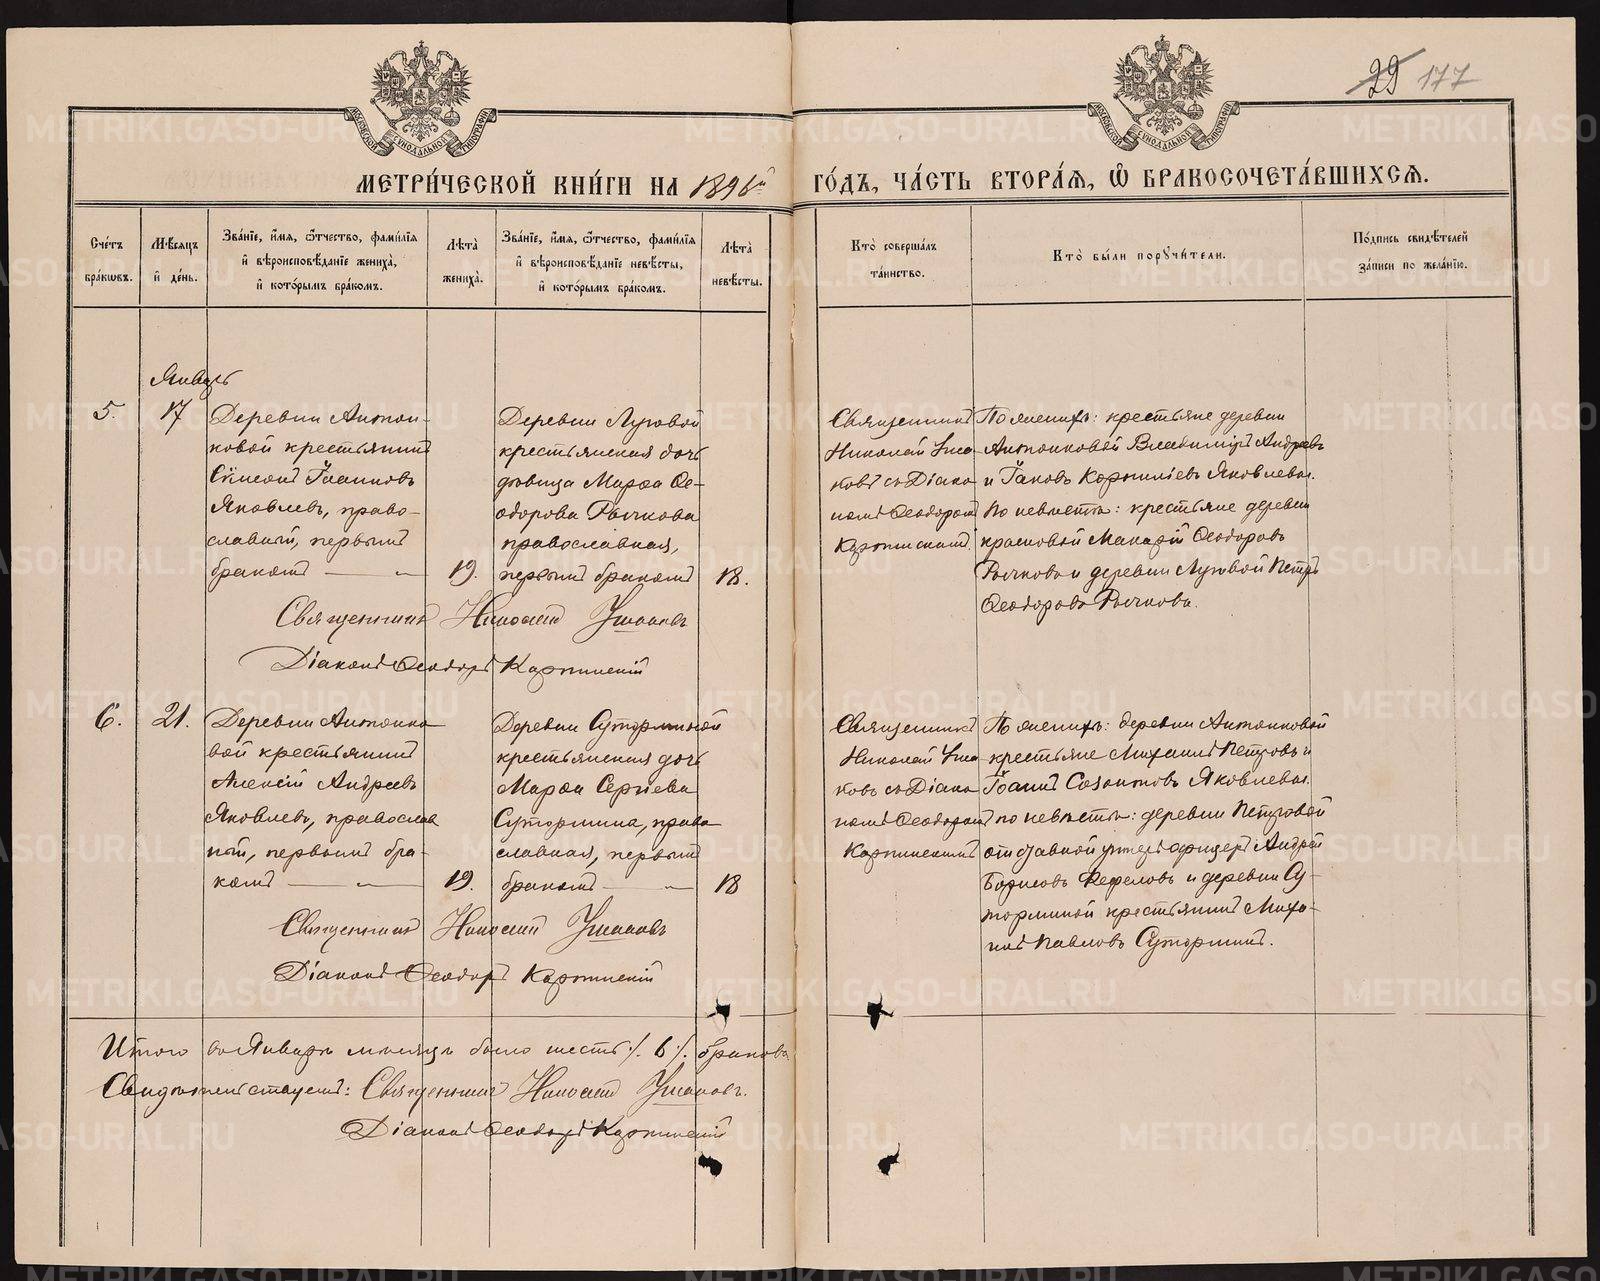 29 177
МОСКОВСКОЙ СУНОДАЛЬНОЙ ТИПОГРАФІИ
МОСКОВСКОЙ СУНОДАЛЬНОЙ ТИПОГРАФІИ
МЕТРИ́ЧЕСКОЙ КНИ́ГИ НА 1896й ГО́ДЪ, ЧА́СТЬ ВТОРА́Я, Ѡ БРАКОСОЧЕТА́ВШИХСЯ.
Сче́тъ бра́кѡвъ.
Мѣ́сяцъ и де́нь.
Зва́нїе, и́мя, ѻ́тчество, фами́лїя и вѣроисповѣ́данїе жениха̀, и кото́рымъ бра́комъ.
Лѣта̀ жениха̀.
Зва́нїе, и́мя, ѻ́тчество, фами́лїя и вѣроисповѣ́данїе невѣ́сты, и кото́рымъ бра́комъ.
Лѣта̀ невѣ́сты.
Кто̀ соверша́лъ та́инство.
Кто̀ бы́ли порꙋчи́тели.
По́дпись свидѣ́телей за́писи по жела́нїю.
Январь
5. 17
Деревни Антон-
ковой крестьянинъ
Сѵмеонъ Іоанновъ
Яковлевъ, право-
славный, первымъ
бракомъ — „ — 19.
Деревни Луговой
крестьянская дочь
дѣвица Марѳа Ѳе-
одорова Рычкова
православная,
первымъ бракомъ 18.
Священникъ
Николай Уша-
ковъ съ Діако-
номъ Ѳеодоромъ
Карпинскимъ.
По женихѣ: крестьяне деревни
Антонковой Владиміръ Андреевъ
и Іаковъ Корниліевъ Яковлевы.
По невѣстѣ: крестьяне деревни
красновой Макарій Ѳеодоровъ
Рычковъ и деревни Луговой Петръ
Ѳеодоровъ Рычковъ.
Священникъ Николай Ушаковъ
Діаконъ Ѳеодоръ Карпинскій
6. 21.
Деревни Антонко
вой крестьянинъ
Алексій Андреевъ
Яковлевъ, православ
ный, первымъ бра-
комъ — „ — 19.
Деревни Суторминой
крестьянская дочь
Марѳа Сергіева
Сутормина, право
славная, первымъ
бракомъ — „ — 18
Священникъ
Николай Уша
ковъ съ Діако
номъ Ѳеодоромъ
Карпинскимъ
По женихѣ: деревни Антонковой
крестьяне Михаилъ Петровъ и
Іоаннъ Созонтовъ Яковлевы.
по невѣстѣ: деревни Петровой
отставной унтеръ офицеръ Андрей
Борисовъ и деревни Су-
торминой крестьянинъ Миха-
илъ Павловъ Суторминъ.
Священникъ Николай Ушаковъ
Діаконъ Ѳеодоръ Карпинскій
Итого въ Январѣ мѣсяцѣ было шесть ./. 6 ./. браковъ
Свидѣтельствуемъ: Священникъ Николай Ушаковъ.
Діаконъ Ѳеодоръ Карпинскій
METRIKI.GASO-URAL.RU